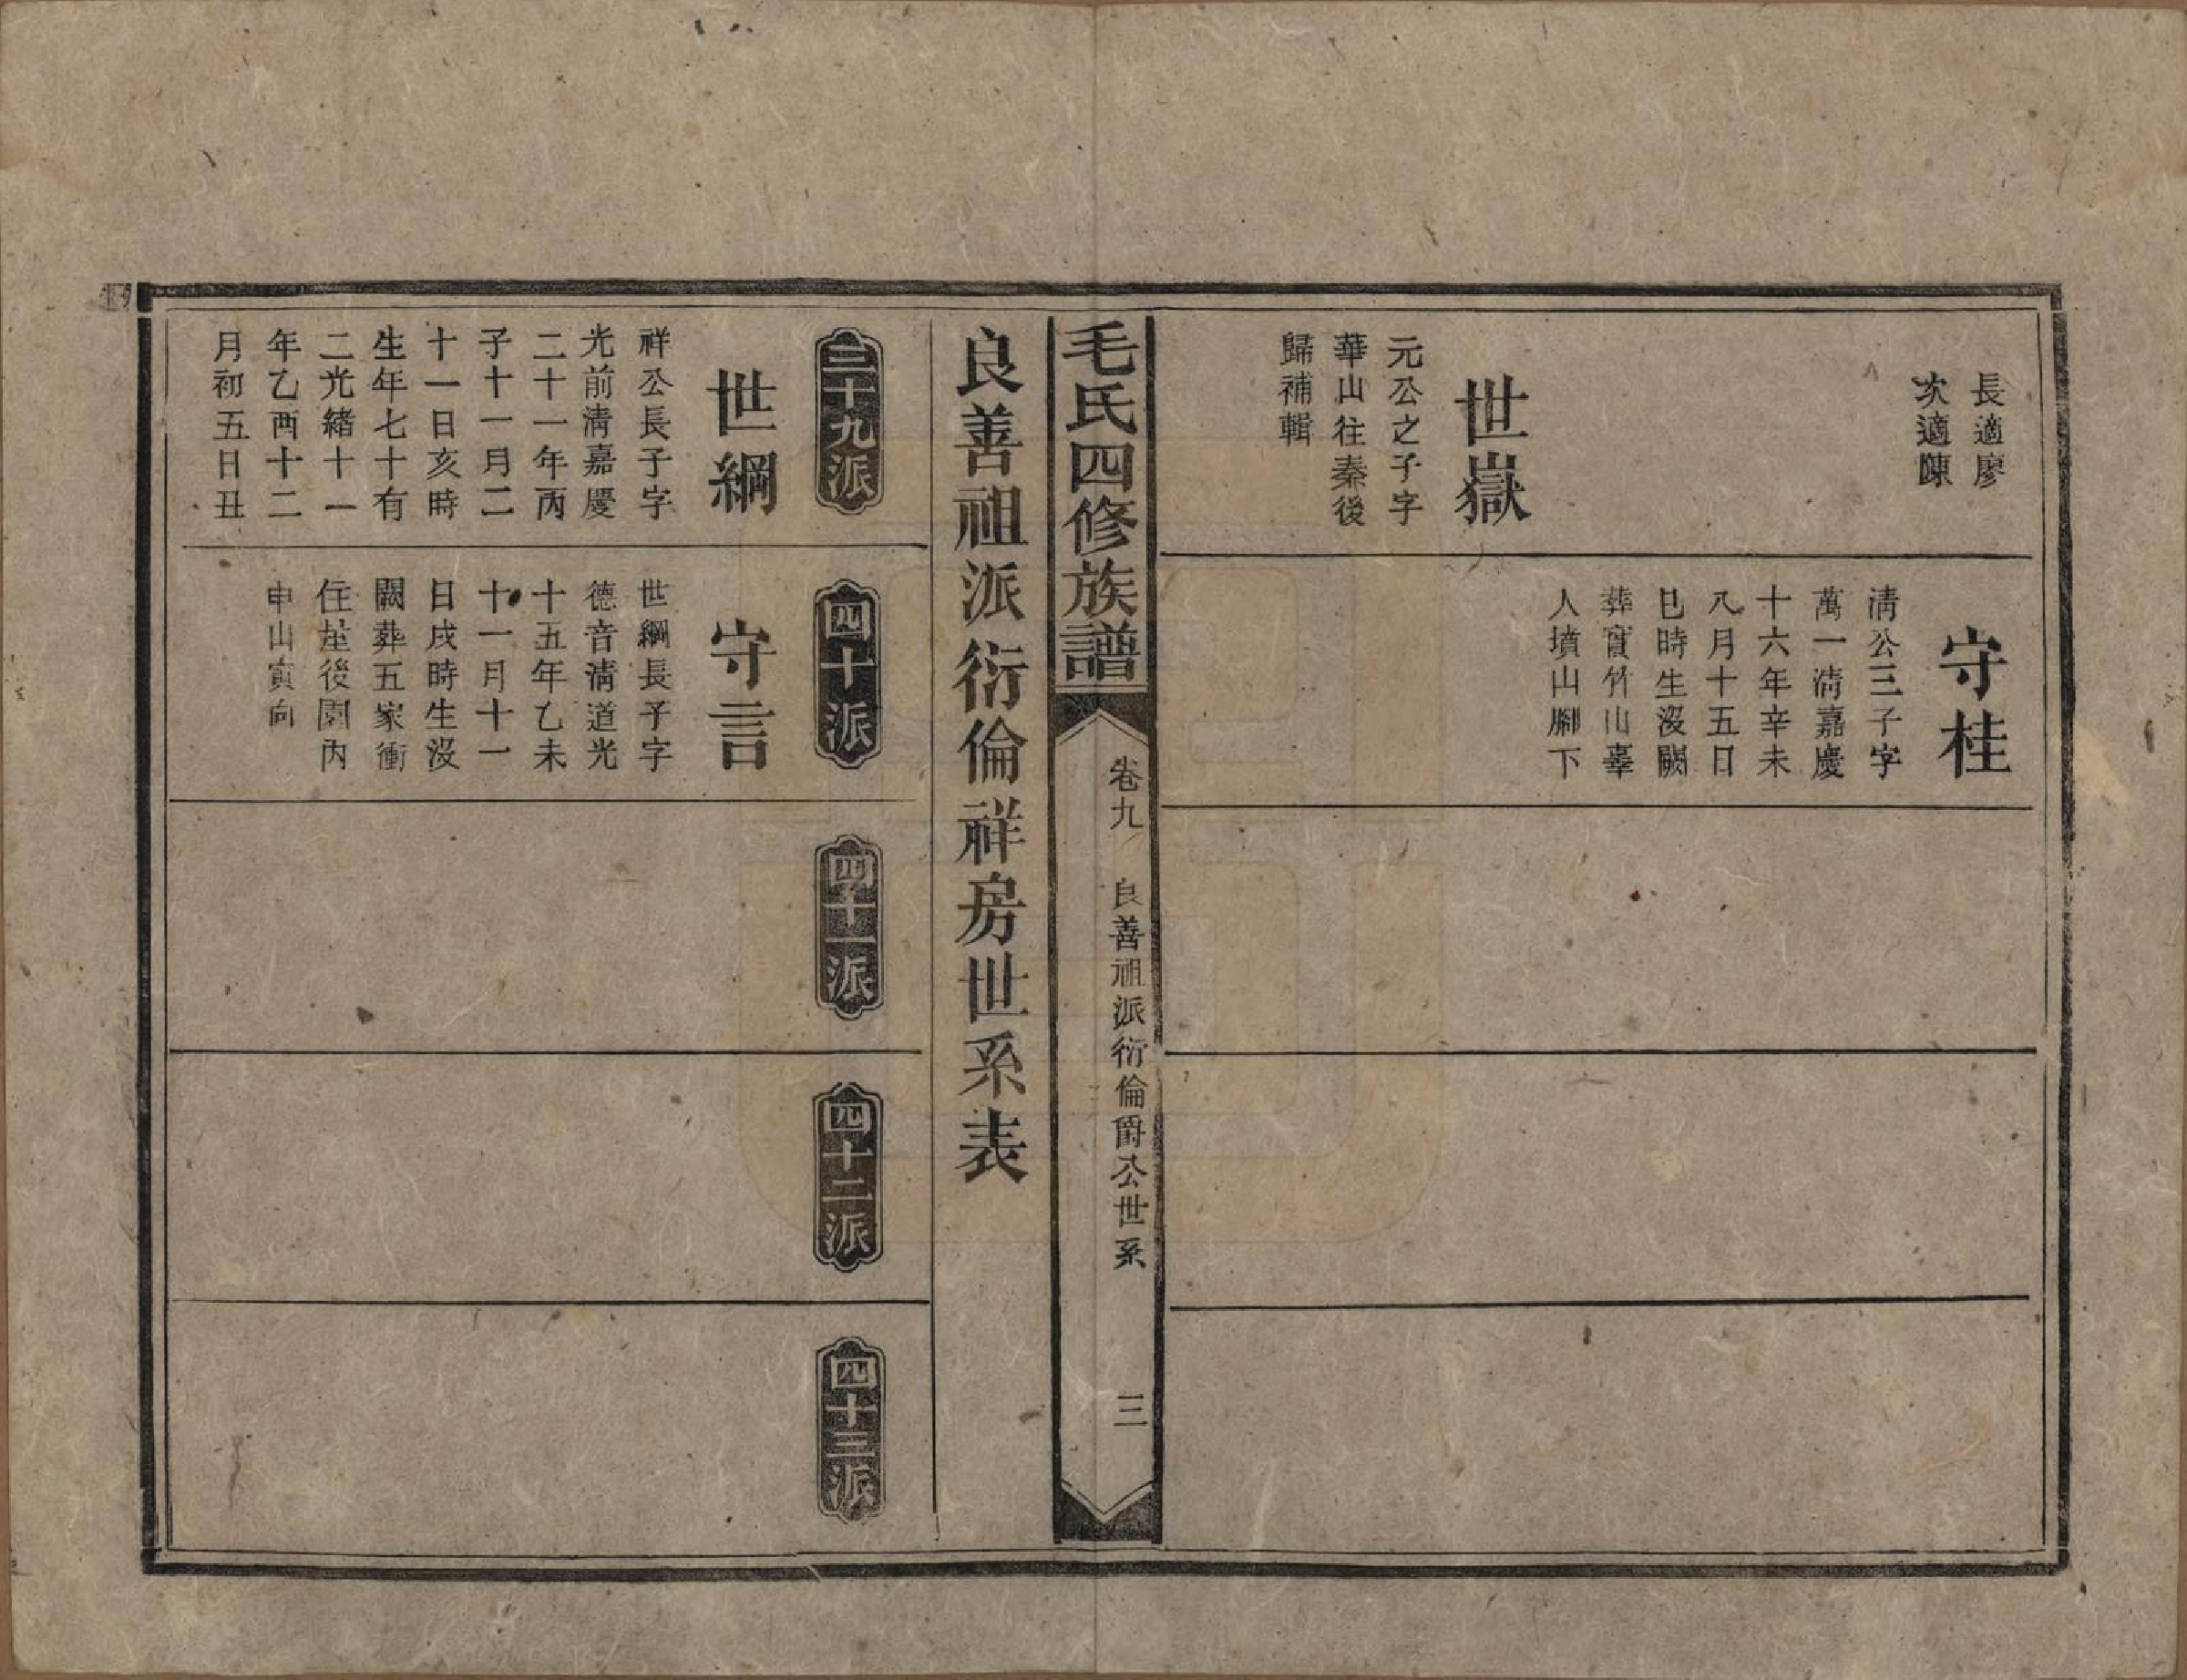 長適廖
次適陳
守桂
清公三子字
萬一清嘉慶
十六年辛未
八月十五日
巳時生沒闕
葬寶竹山辜
人墳山腳下
世嶽
元公之子字
華山往秦後
歸補輯
毛氏四修族譜
卷九
良善祖派衍倫爵公世系
三
良善祖派衍倫祥房世系表
三十九派
世綱
祥公長子字
光前清嘉慶
二十一年丙
子十一月二
十一日亥時
生年七十有
二光緒十一
年乙酉十二
月初五日丑
四十派
守言
世綱長子字
德音清道光
十五年乙未
十一月十一
日戌時生沒
闕葬五家衝
住屋後園內
申山寅向
四十一派
四十二派
四十三派